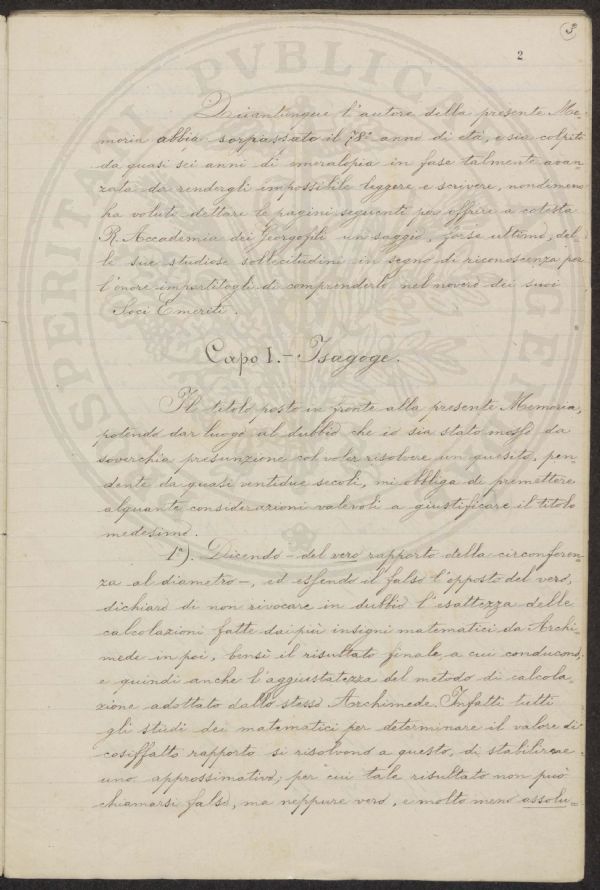 3
2
Quantunque l'autore della presente Me-
moria abbia sorpassato il 78º anno di età, e sia colpito
da quasi sei anni di emeralopia in fase talmente avan-
zata da rendergli impossibile leggere e scrivere, nondimeno
ha voluto dettare le pagine seguenti per offrire a cotesta
R. Accademia dei Georgofili un saggio, forse ultimo, del-
le sue studiose sollecitudini in segno di riconoscenza per
l'onore impartitogli di comprenderlo nel novero dei suoi
Soci Emeriti.
Capo I. - Isagoge.
Il titolo posto in fronte alla presente Memoria,
potendo dar luogo al dubbio che io sia stato mosso da
soverchia presunzione col voler risolvere un quesito, pen-
dente da quasi ventidue secoli, mi obbliga di premettere
alquante considerazioni valevoli a giustificare il titolo
medesimo.
1º). Dicendo - del vero rapporto della circonferen-
za al diametro -, ed essendo il falso l'opposto del vero,
dichiaro di non rivocare in dubbio l'esattezza delle
calcolazioni fatte dai più insigni matematici da Archi-
mede in poi, bensì il risultato finale a cui conducono,
e quindi anche l'aggiustatezza del metodo di calcola-
zione adottato dallo stesso Archimede. Infatti tutti
gli studi dei matematici per determinare il valore di
cosiffatto rapporto si risolvono a questo, di stabilirne
uno approssimativo; per cui tale risultato non può
chiamarsi falso, ma neppure vero, e molto meno assolu-
SPERITAS PVBLICA
GEN